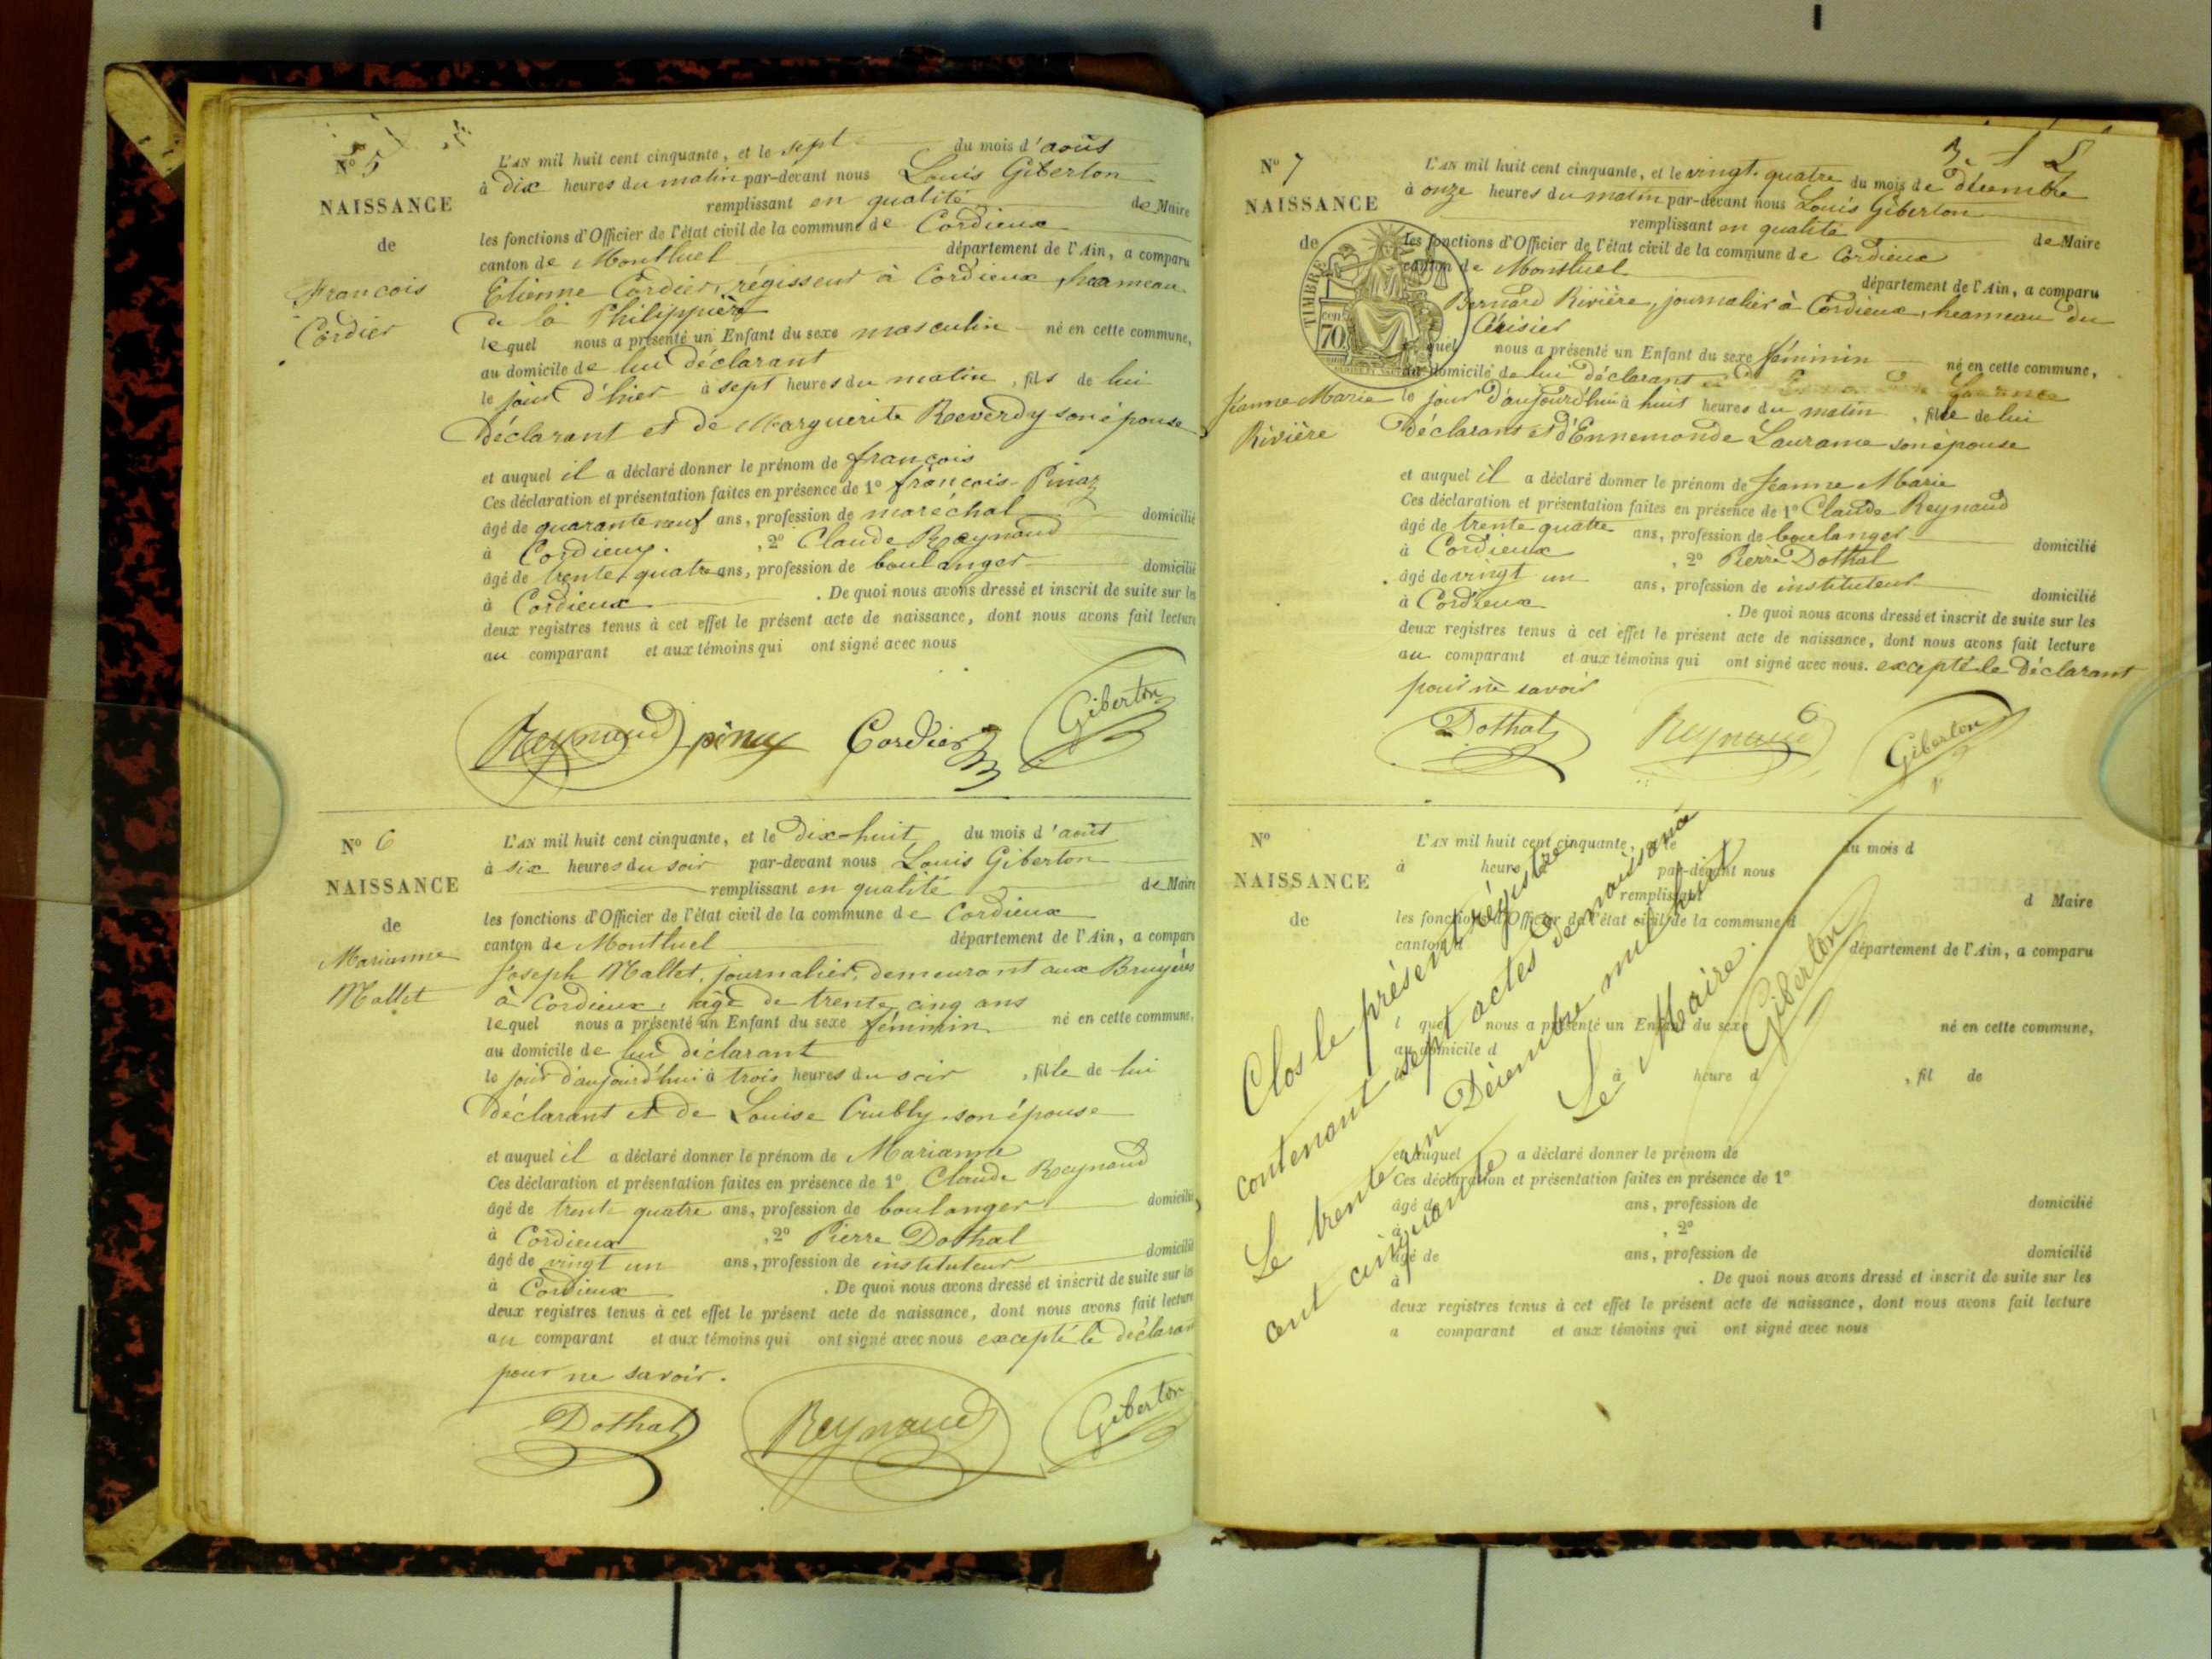 Nº 5
NAISSANCE
de
François
Cordier
L'AN mil huit cent cinquante, et le sept du mois d'août
à dix heures du matin par-devant nous Louis Giberton
remplissant en qualité de Maire
les fonctions d'Officier de l'état civil de la commune de Cordieux
canton de Montluel département de l'Ain, a comparu
Etienne Cordier, régisseur à Cordieux, hameau
de la Philippière
lequel nous a présenté un Enfant du sexe masculin né en cette commune,
au domicile de lui déclarant
le jour d'hier à sept heures du matin, fils de lui
déclarant et de Marguerite Reverdy son épouse
et auquel il a déclaré donner le prénom de françois
Ces déclaration et présentation faites en présence de 1º françois Pinaz
âgé de quarante neuf ans, profession de maréchal domicilié
à Cordieux. , 2º Claude Reynaud
âgé de trente quatre ans, profession de boulanger domicilié
à Cordieux . De quoi nous avons dressé et inscrit de suite sur les
deux registres tenus à cet effet le présent acte de naissance, dont nous avons fait lecture
au comparant et aux témoins qui ont signé avec nous
Reynaud pinaz Cordier Giberton
Nº 6
NAISSANCE
de
Marianne
Mallet
L'AN mil huit cent cinquante, et le dix-huit du mois d'août
à six heures du soir par-devant nous Louis Giberton
remplissant en qualité de Maire
les fonctions d'Officier de l'état civil de la commune de Cordieux
canton de Montluel département de l'Ain, a comparu
Joseph Mallet, journalier, demeurant aux Bruyères
à Cordieux, âgé de trente cinq ans
lequel nous a présenté un Enfant du sexe féminin né en cette commune,
au domicile de lui déclarant
le jour d'aujourd'hui à trois heures du soir , fille de lui
déclarant et de Louise son épouse
et auquel il a déclaré donner le prénom de Marianne
Ces déclaration et présentation faites en présence de 1º Claude Reynaud
âgé de trente quatre ans, profession de boulanger domicilié
à Cordieux , 2º Pierre Dothal
âgé de vingt un ans, profession de instituteur domicilié
à Cordieux . De quoi nous avons dressé et inscrit de suite sur les
deux registres tenus à cet effet le présent acte de naissance, dont nous avons fait lecture
au comparant et aux témoins qui ont signé avec nous excepté le déclarant
pour ne savoir.
Dothal Reynaud Giberton
Nº 7
NAISSANCE
de
Jeanne Marie
Rivière
TIMBRE
70 cent
L'AN mil huit cent cinquante, et le vingt-quatre du mois de décembre
à onze heures du matin par-devant nous Louis Giberton
remplissant en qualité de Maire
les fonctions d'Officier de l'état civil de la commune de Cordieux
canton de Montluel département de l'Ain, a comparu
Bernard Rivière, journalier à Cordieux, hameau du
Cérisier
lequel nous a présenté un Enfant du sexe féminin né en cette commune,
au domicile de lui déclarant
le jour d'aujourd'hui à huit heures du matin , fille de lui
déclarant et d'Ennemonde Laurame son épouse
et auquel il a déclaré donner le prénom de Jeanne Marie
Ces déclaration et présentation faites en présence de 1º Claude Reynaud
âgé de trente quatre ans, profession de boulanger domicilié
à Cordieux , 2º Pierre Dothal
âgé de vingt un ans, profession de instituteur domicilié
à Cordieux . De quoi nous avons dressé et inscrit de suite sur les
deux registres tenus à cet effet le présent acte de naissance, dont nous avons fait lecture
au comparant et aux témoins qui ont signé avec nous. excepté le déclarant
pour ne savoir
Dothal Reynaud Giberton
Nº
NAISSANCE
de
L'AN mil huit cent cinquante, et le du mois d
à heure par-devant nous
remplissant d Maire
les fonctions d'Officier de l'état civil de la commune d
canton d département de l'Ain, a comparu
l quel nous a présenté un Enfant du sexe né en cette commune,
au domicile d
à heure d , fil de
et auquel a déclaré donner le prénom de
Ces déclaration et présentation faites en présence de 1º
âgé de ans, profession de domicilié
à , 2º
âgé de ans, profession de domicilié
à . De quoi nous avons dressé et inscrit de suite sur les
deux registres tenus à cet effet le présent acte de naissance, dont nous avons fait lecture
a comparant et aux témoins qui ont signé avec nous
Clos le présent régistre
contenant sept actes de naissance
Le trente un Décembre mil huit
cent cinquante
Le Maire.
Giberton